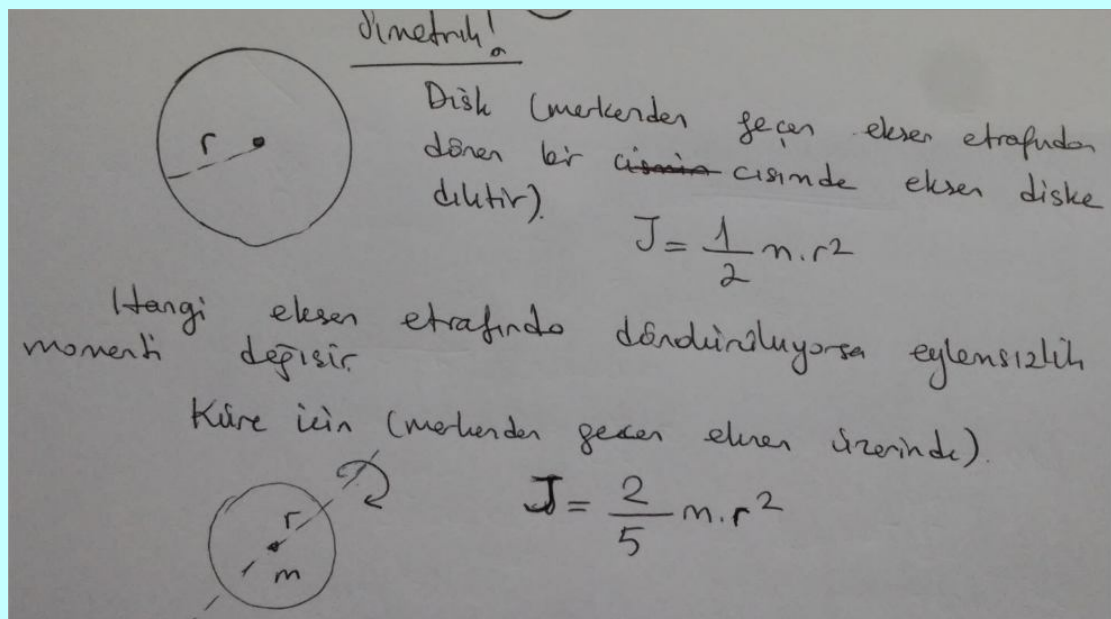 simetrik!
r
Disk (merkezden geçen eksen etrafında
dönen bir cismin cisimde eksen diske
diktir).
J = 1/2 m.r²
Hangi eksen etrafında döndürülüyorsa eylemsizlik
momenti değişir.
Küre için (merkezden geçen eksen üzerinde).
r
m
J = 2/5 m.r²